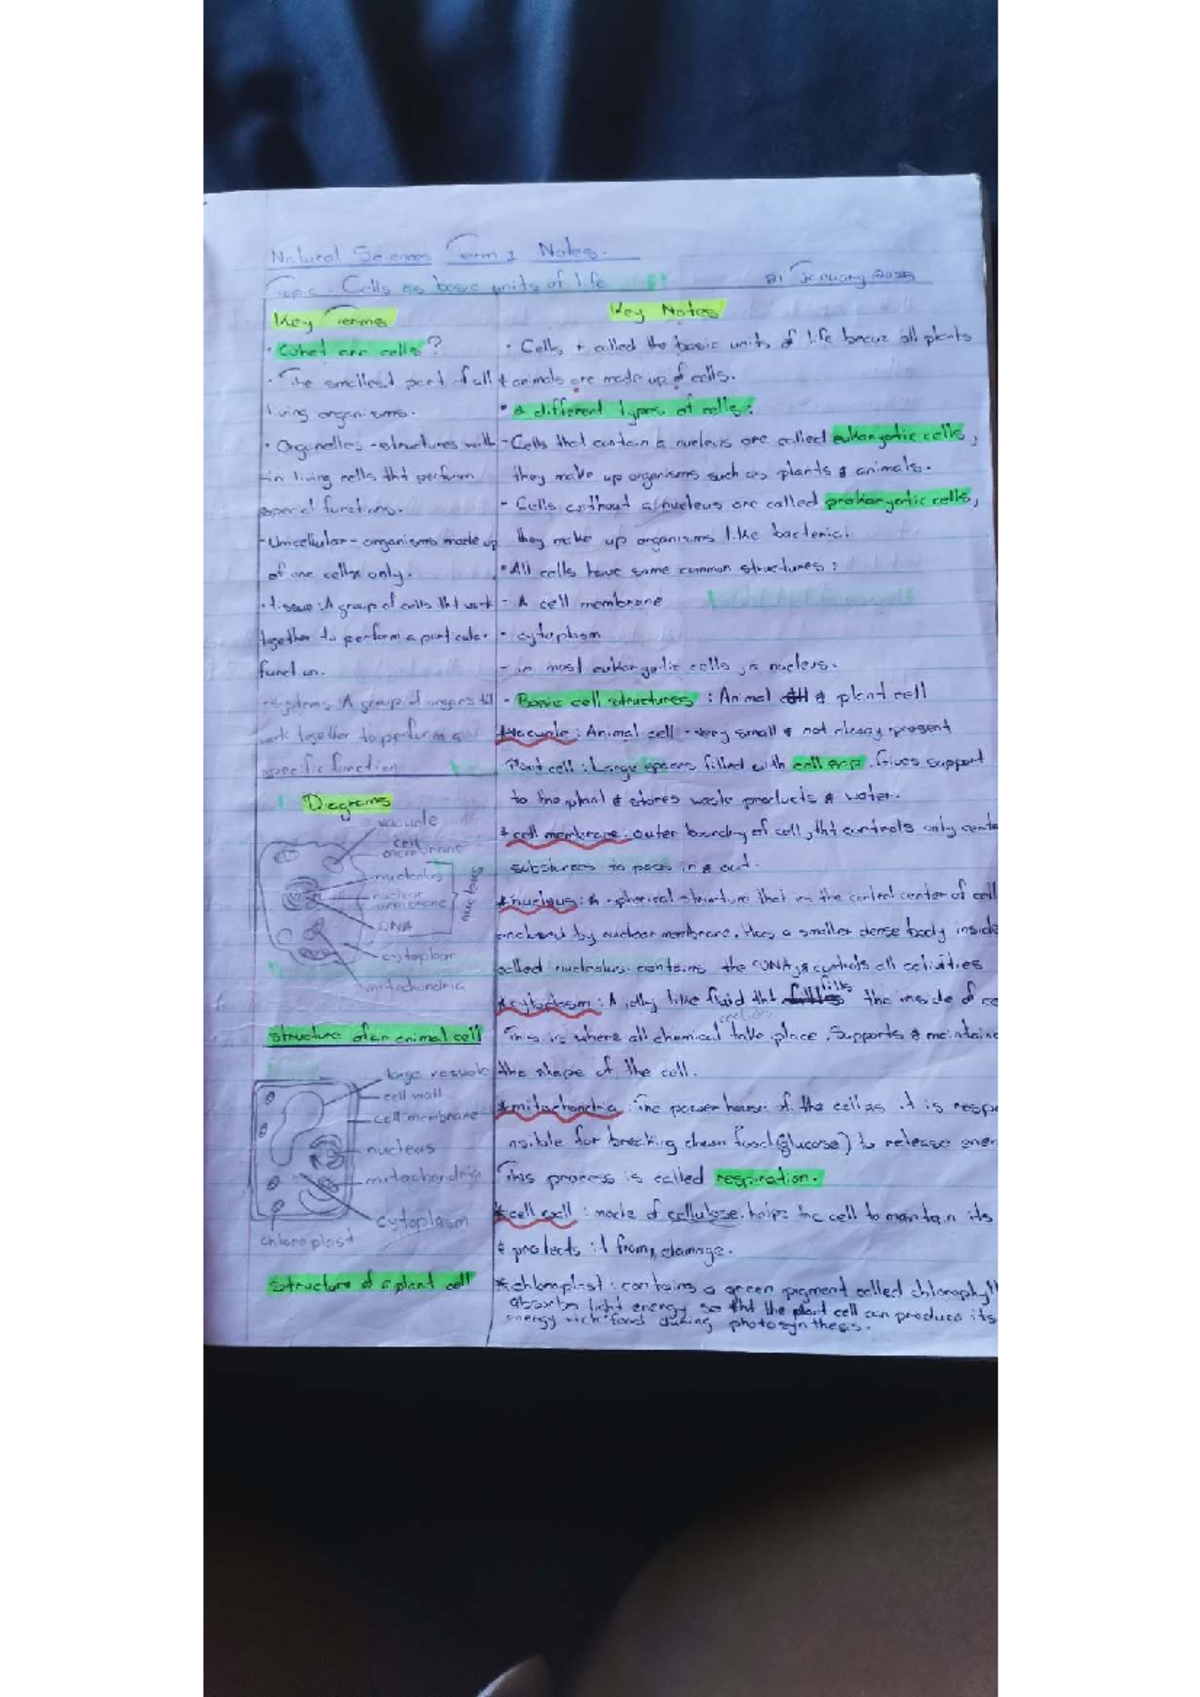 Natural Sciences Term 1 Notes.
Topic. Cells as basic units of life
21 January 2025
Key Terms
· What are cells?
· The smallest part of all
living organisms.
· Organelles - structures with
in living cells tht perform
special functions.
- Unicellular - organisms made up
of one cell only.
· tissue: A group of cells tht work
together to perform a particular
function.
· systems: A group of organs tht
work together to perform a
specific function
Diagrams
vacuole
cell
membrane
nucleolus
nuclear
membrane
DNA
nucleus
cytoplasm
mitochondria
Structure of an animal cell
large vacuole
cell wall
cell membrane
nucleus
mitochondria
cytoplasm
chloroplast
Structure of a plant cell
Key Notes
· Cells + called the basic units of life all plants
& animals are made up of cells.
· 2 different types of cells:
- Cells that contain a nucleus are called eukaryotic cells,
they make up organisms such as plants & animals.
- Cells without a nucleus are called prokaryotic cells,
they make up organisms like bacteria.
· All cells have some common structures:
- A cell membrane
- cytoplasm
- in most eukaryotic cells, a nucleus.
· Basic cell structures: Animal & plant cell
* Vacuole: Animal cell - very small & not clearly present
Plant cell: Large spaces filled with cell sap. Gives support
to the plant & stores waste products & water.
* cell membrane: outer boundry of cell, tht controls only
substances to pass in & out.
* nucleus: A spherical structure that is the control center of cell
enclosed by nuclear membrane. Has a smaller dense body inside
called nucleolus. contains the DNA, & controls all activities
* cytoplasm: A jelly like fluid tht fills the inside of ce
This is where all chemical reactions take place. Supports & maintains
the shape of the cell.
* mitochondria: The power house of the cell as it is respo
nsible for breaking down food (glucose) to release ener
This process is called respiration.
* cell wall: made of cellulose. helps the cell to maintain its
& protects it from damage.
* chloroplast: contains a green pigment called chlorophyll
absorbs light energy so tht the plant cell can produce its
energy rich food during photosynthesis.